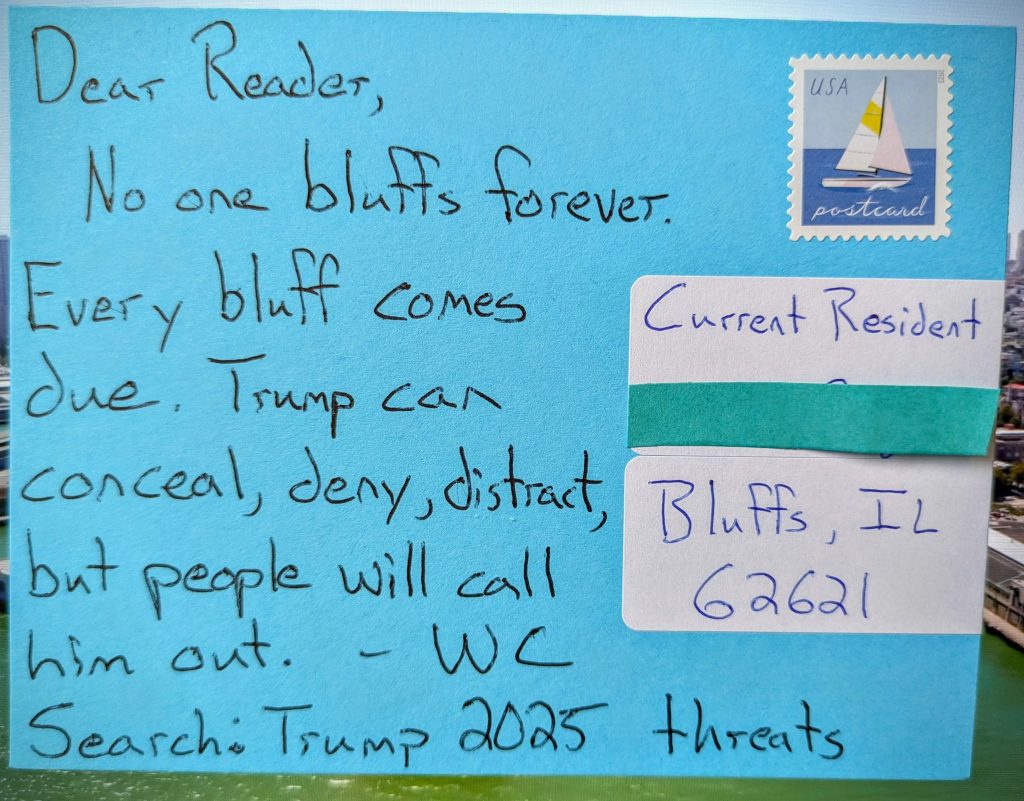 Dear Reader,
No one bluffs forever.
Every bluff comes
due. Trump can
conceal, deny, distract,
but people will call
him out. - WC
Search: Trump 2025 threats
USA
2023
postcard
Current Resident
Bluffs, IL
62621